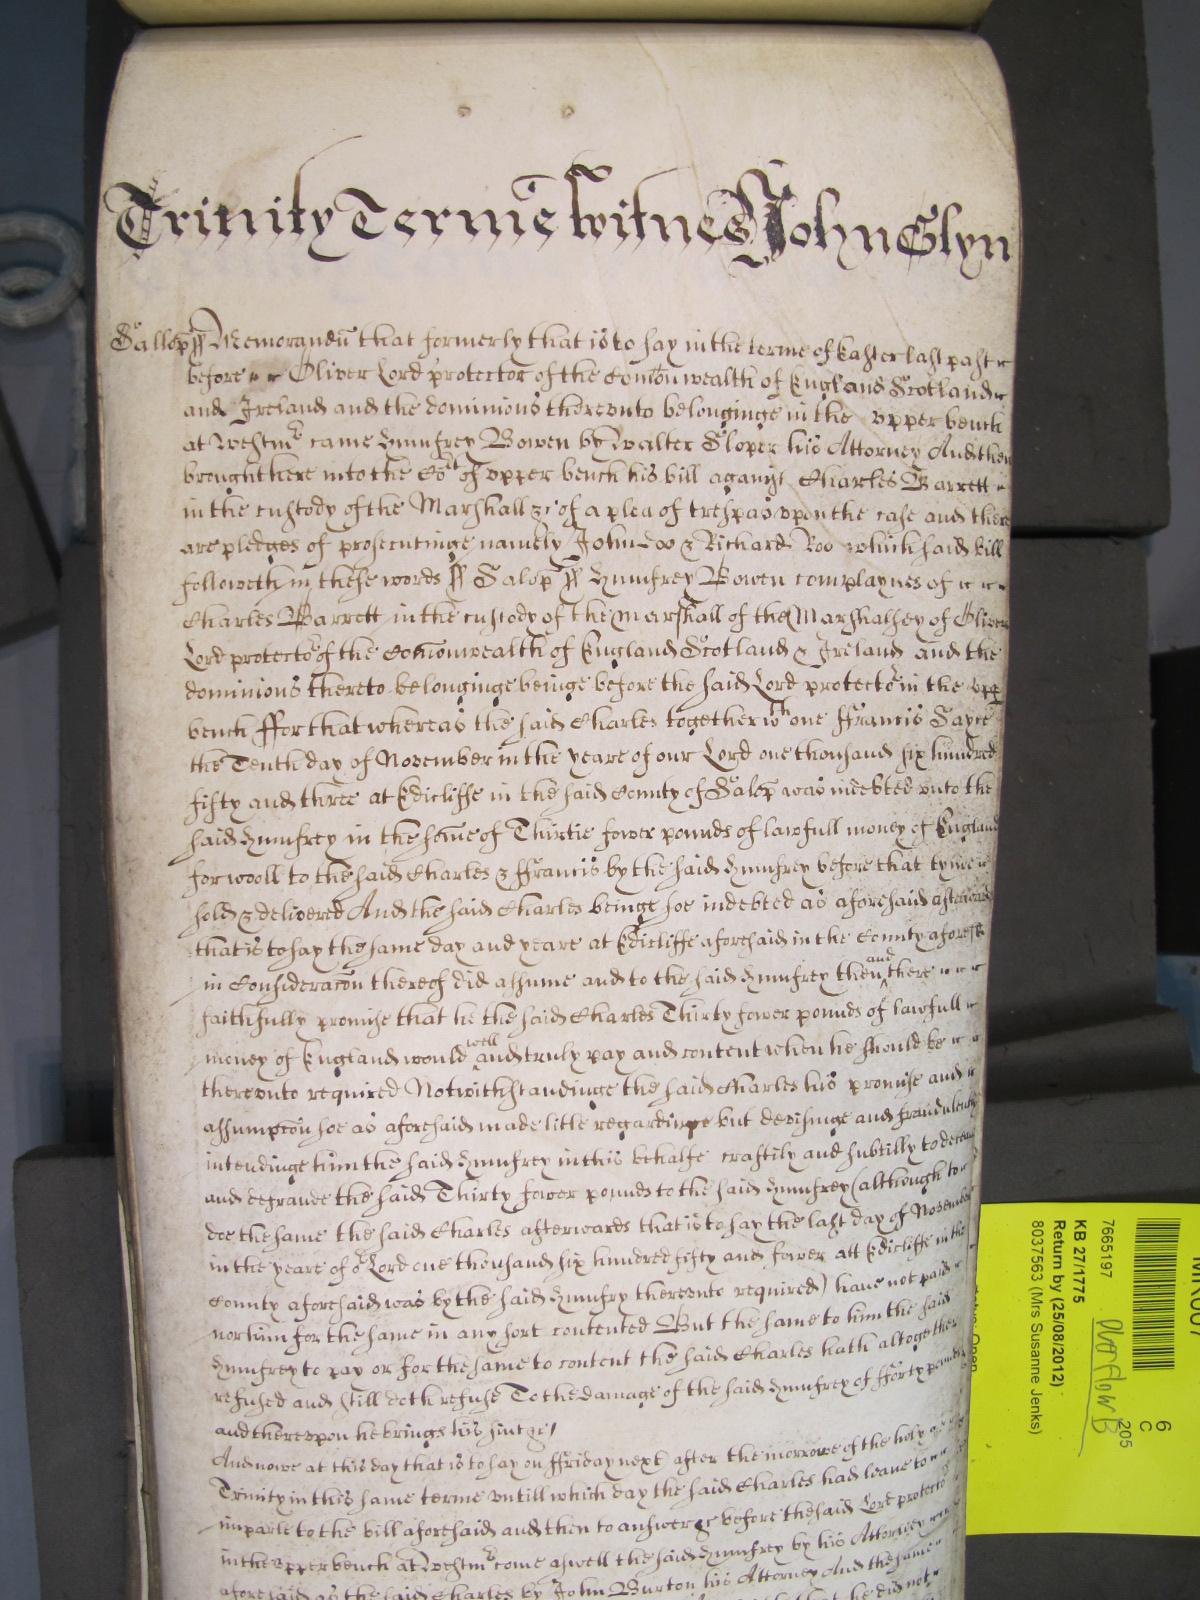 Trinity Terme witnes John Glyn
Sallop ss Memorandu that formerly that is to say in the terme of Easter last past
before Oliver Lord protector of the Comonwealth of England Scotland
and Ireland and the dominions therevnto belonginge in the vpper bench
at Westmr came Humfrey Bowen by Walter Sloper his Attorney And then
brought here into the Cort of vpper bench his bill against Charles Barrett
in the custody of the Marshall &c of a plea of trespas vpon the case and there
are pledges of prosecutinge namely John Doo & Richard Roo which said bill
followeth in these words ss Salop ss Humfrey Bowen complaynes of
Charles Barrett in the custody of the Marshall of the Marshalsey of Oliver
Lord protector of the Comonwealth of England Scotland & Ireland and the
dominions thereto belonginge beinge before the said Lord protector in the vpp
bench ffor that whereas the said Charles together wth one ffrancis Sayce
the Tenth day of November in the yeare of our Lord one thousand six hundred
fifty and three at Edicliffe in the said County of Salop was indebted vnto the
said Humfrey in the some of Thirtie fower pounds of lawfull money of England
for wooll to the said Charles & ffrancis by the said Humfrey before that tyme
sold & delivered And the said Charles beinge soe indebted as aforesaid afterwards
that is to say the same day and yeare at Edicliffe aforesaid in the County aforesd
in Consideracon thereof did assume and to the said Humfrey then and there
faithfully promise that he the said Charles Thirty fower pounds of lawfull
money of England would well and truly pay and content when he should be
therevnto required Notwithstandinge the said Charles his promise and
assumpcon soe as aforesaid made litle regardinge but devisinge and fraudulently
intendinge him the said Humfrey in this behalfe craftily and subtilly to deceave
and defraude the said Thirty fower pounds to the said Humfrey (although to
doe the same the said Charles afterwards that is to say the last day of November
in the yeare of or Lord one thousand six hundred fifty and fower att Edicliffe in the
County aforesaid was by the said Humfry therevnto required) have not paid
nor him for the same in any sort contented But the same to him the said
Humfrey to pay or for the same to content the said Charles hath altogether
refused and still doth refuse To the damage of the said Humfrey of fforty pounds
and therevpon he brings his suit &c/
And nowe at this day that is to say on ffriday next after the morrowe of the holy
Trinity in this same terme vntill which day the said Charles had leave to
imparle to the bill aforesaid and then to answer &c before the said Lord protector
in the vpper bench at Westmr come aswell the said Humfrey by his Attorney
aforesaid as the said Charles by John Burton his Attorney And the same
that he did not
7665197
KB 27/1775
Return by (25/08/2012)
8037563 (Mrs Susanne Jenks)
6
C
205